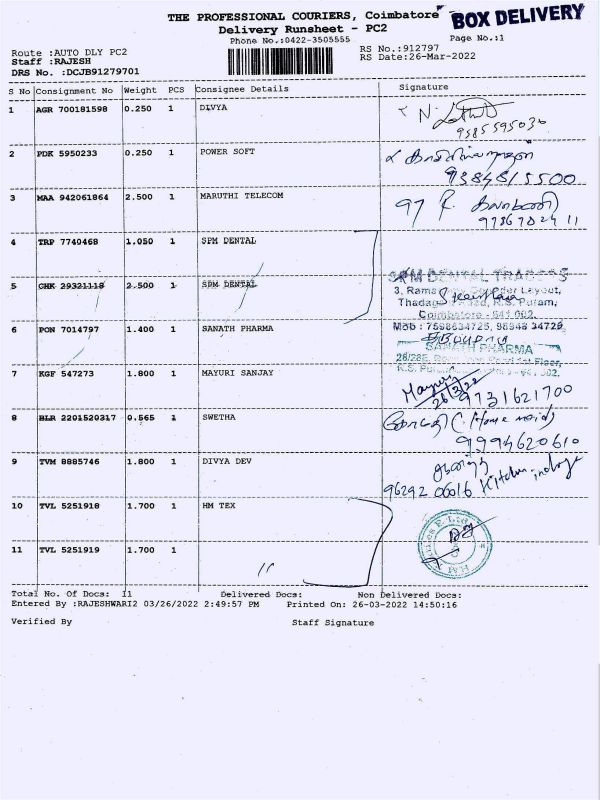 THE PROFESSIONAL COURIERS, Coimbatore
BOX DELIVERY
Delivery Runsheet - PC2
Phone No.:0422-3505555
Page No.:1
Route :AUTO DLY PC2
Staff :RAJESH
DRS No. :DCJB91279701
RS No.:912797
RS Date:26-Mar-2022
S No Consignment No Weight PCS Consignee Details Signature
1 AGR 700181598 0.250 1 DIVYA
9585595036
2 PDK 5950233 0.250 1 POWER SOFT
9384815500
3 MAA 942061864 2.500 1 MARUTHI TELECOM
4 TRP 7740468 1.050 1 SPM DENTAL
SPM DENTAL TRADERS
5 CHK 29321118 2.500 1 SPM DENTAL
Coimbatore - 641 002.
6 PON 7014797 1.400 1 SANATH PHARMA
SANATH PHARMA
7 KGF 547273 1.800 1 MAYURI SANJAY
Mayuri
26/3/22
9731621700
8 BLR 2201520317 0.565 1 SWETHA
(Home maid)
9994620610
9 TVM 8885746 1.800 1 DIVYA DEV
96292 06616
10 TVL 5251918 1.700 1 HM TEX
11 TVL 5251919 1.700 1
Total No. Of Docs: 11 Delivered Docs: Non Delivered Docs:
Entered By :RAJESHWARI2 03/26/2022 2:49:57 PM Printed On: 26-03-2022 14:50:16
Verified By Staff Signature